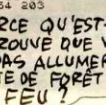 54 203
RCE QU'EST-
ROUVE QUE V
PAS ALLUMER
TE DE FORÊT
FEU ?